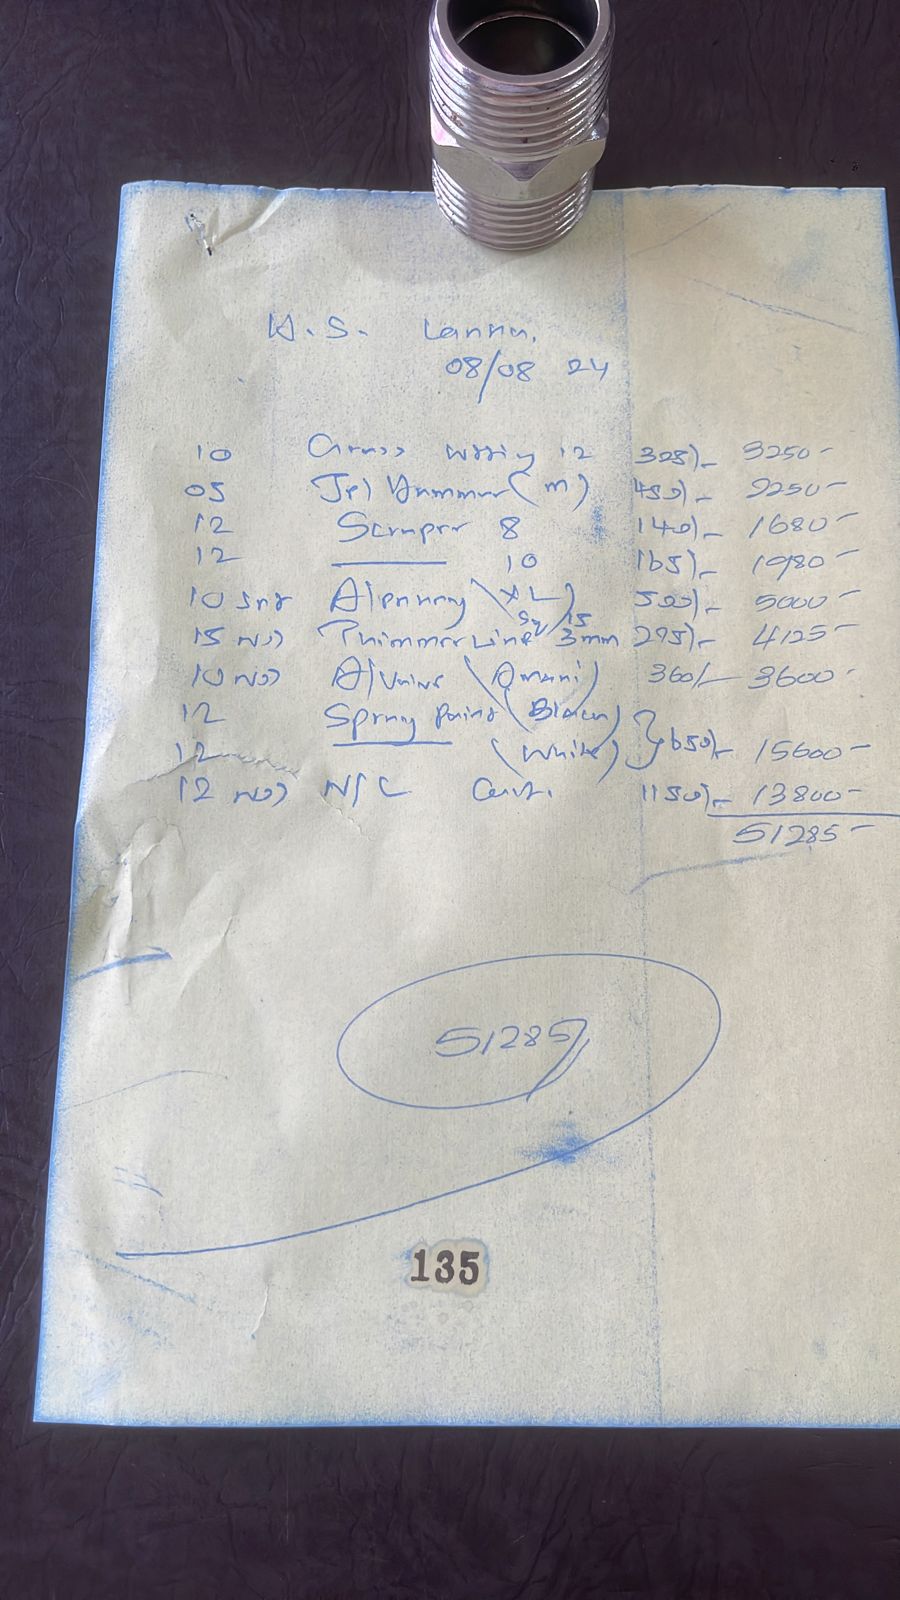 H.S. Lanka.
08/08 24
10 Grass 12 325/- 3250-
05 (m) 450/- 2250-
12 Scraper 8 140/- 1680-
12 —— 10 165/- 1980-
10 (XL) 500/- 5000-
15 Nos Trimmer Line Sq/15 3mm 275/- 4125-
10 Nos (Omani) 360/- 3600-
12 Spray Paint (Black)
12 —— (White) } 650/- 15600-
12 Nos N/C 1150/- 13800-
51285-
51285/
135